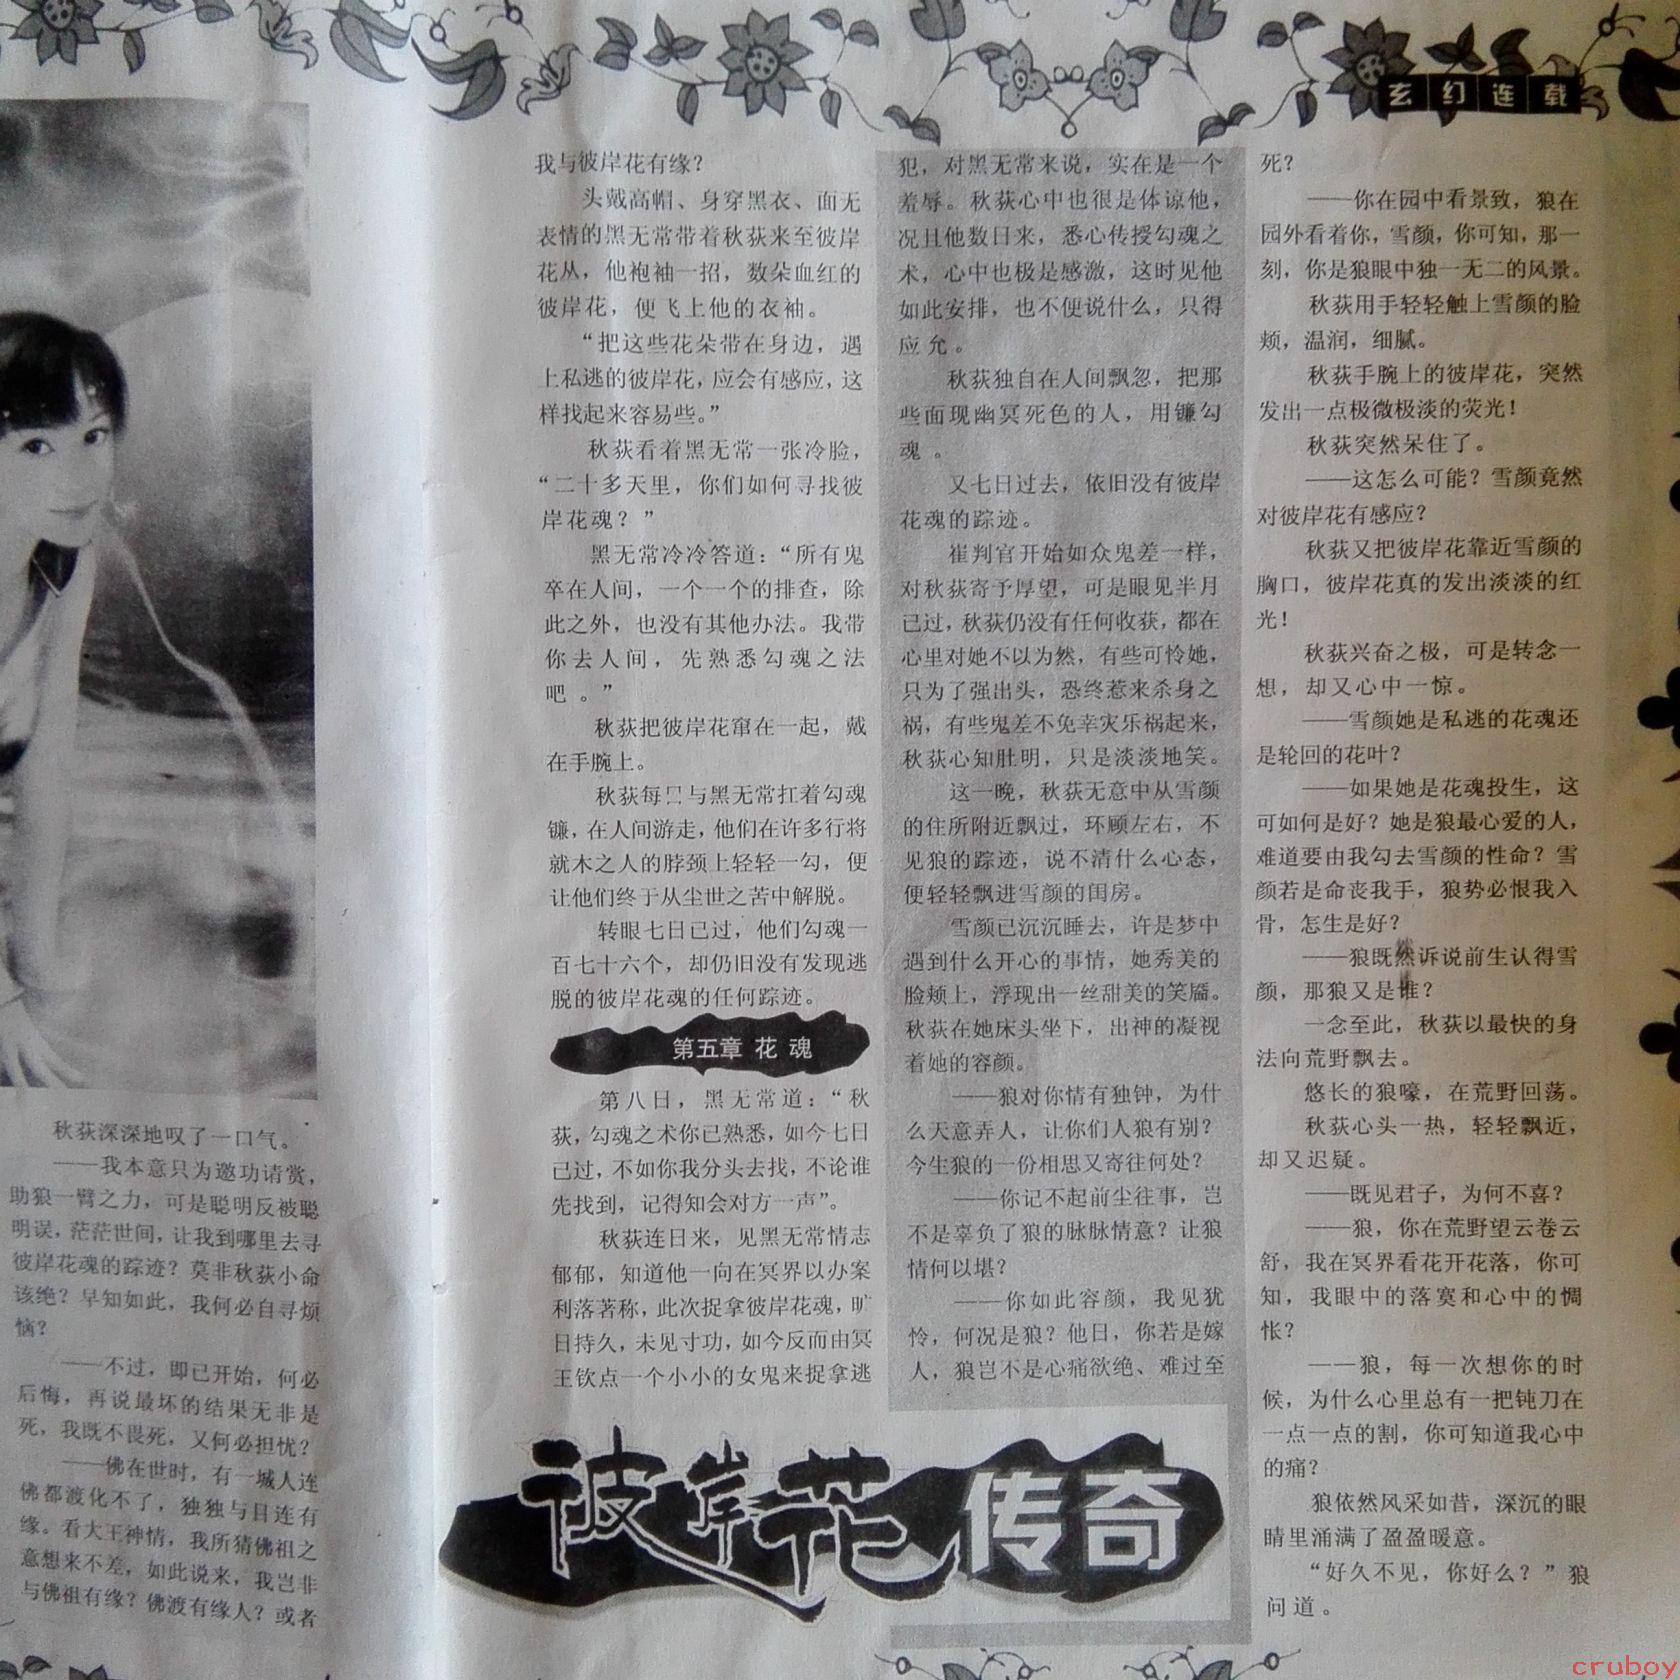 玄幻连载
秋荻深深地叹了一口气。
——我本意只为邀功请赏，
助狼一臂之力，可是聪明反被聪
明误，茫茫世间，让我到哪里去寻
彼岸花魂的踪迹？莫非秋荻小命
该绝？早知如此，我何必自寻烦
恼？
——不过，即已开始，何必
后悔，再说最坏的结果无非是
死，我既不畏死，又何必担忧？
——佛在世时，有一城人连
佛都渡化不了，独独与目连有
缘。看大王神情，我所猜佛祖之
意想来不差，如此说来，我岂非
与佛祖有缘？佛渡有缘人？或者
我与彼岸花有缘？
头戴高帽、身穿黑衣、面无
表情的黑无常带着秋荻来至彼岸
花丛，他袍袖一招，数朵血红的
彼岸花，便飞上他的衣袖。
“把这些花朵带在身边，遇
上私逃的彼岸花，应会有感应，这
样找起来容易些。”
秋荻看着黑无常一张冷脸，
“二十多天里，你们如何寻找彼
岸花魂？”
黑无常冷冷答道：“所有鬼
卒在人间，一个一个的排查，除
此之外，也没有其他办法。我带
你去人间，先熟悉勾魂之法
吧。”
秋荻把彼岸花窜在一起，戴
在手腕上。
秋荻每日与黑无常扛着勾魂
镰，在人间游走，他们在许多行将
就木之人的脖颈上轻轻一勾，便
让他们终于从尘世之苦中解脱。
转眼七日已过，他们勾魂一
百七十六个，却仍旧没有发现逃
脱的彼岸花魂的任何踪迹。
第五章 花 魂
第八日，黑无常道：“秋
荻，勾魂之术你已熟悉，如今七日
已过，不如你我分头去找，不论谁
先找到，记得知会对方一声”。
秋荻连日来，见黑无常情志
郁郁，知道他一向在冥界以办案
利落著称，此次捉拿彼岸花魂，旷
日持久，未见寸功，如今反而由冥
王钦点一个小小的女鬼来捉拿逃
犯，对黑无常来说，实在是一个
羞辱。秋荻心中也很是体谅他，
况且他数日来，悉心传授勾魂之
术，心中也极是感激，这时见他
如此安排，也不便说什么，只得
应允。
秋荻独自在人间飘忽，把那
些面现幽冥死色的人，用镰勾
魂。
又七日过去，依旧没有彼岸
花魂的踪迹。
崔判官开始如众鬼差一样，
对秋荻寄予厚望，可是眼见半月
已过，秋荻仍没有任何收获，都在
心里对她不以为然，有些可怜她，
只为了强出头，恐终惹来杀身之
祸，有些鬼差不免幸灾乐祸起来，
秋荻心知肚明，只是淡淡地笑。
这一晚，秋荻无意中从雪颜
的住所附近飘过，环顾左右，不
见狼的踪迹，说不清什么心态，
便轻轻飘进雪颜的闺房。
雪颜已沉沉睡去，许是梦中
遇到什么开心的事情，她秀美的
脸颊上，浮现出一丝甜美的笑靥。
秋荻在她床头坐下，出神的凝视
着她的容颜。
——狼对你情有独钟，为什
么天意弄人，让你们人狼有别？
今生狼的一份相思又寄往何处？
——你记不起前尘往事，岂
不是辜负了狼的脉脉情意？让狼
情何以堪？
——你如此容颜，我见犹
怜，何况是狼？他日，你若是嫁
人，狼岂不是心痛欲绝、难过至
死？
——你在园中看景致，狼在
园外看着你，雪颜，你可知，那一
刻，你是狼眼中独一无二的风景。
秋荻用手轻轻触上雪颜的脸
颊，温润，细腻。
秋荻手腕上的彼岸花，突然
发出一点极微极淡的荧光！
秋荻突然呆住了。
——这怎么可能？雪颜竟然
对彼岸花有感应？
秋荻又把彼岸花靠近雪颜的
胸口，彼岸花真的发出淡淡的红
光！
秋荻兴奋之极，可是转念一
想，却又心中一惊。
——雪颜她是私逃的花魂还
是轮回的花叶？
——如果她是花魂投生，这
可如何是好？她是狼最心爱的人，
难道要由我勾去雪颜的性命？雪
颜若是命丧我手，狼势必恨我入
骨，怎生是好？
——狼既然诉说前生认得雪
颜，那狼又是谁？
一念至此，秋荻以最快的身
法向荒野飘去。
悠长的狼嚎，在荒野回荡。
秋荻心头一热，轻轻飘近，
却又迟疑。
——既见君子，为何不喜？
——狼，你在荒野望云卷云
舒，我在冥界看花开花落，你可
知，我眼中的落寞和心中的惆
怅？
——狼，每一次想你的时
候，为什么心里总有一把钝刀在
一点一点的割，你可知道我心中
的痛？
狼依然风采如昔，深沉的眼
睛里涌满了盈盈暖意。
“好久不见，你好么？”狼
问道。
彼岸花传奇
cruboy